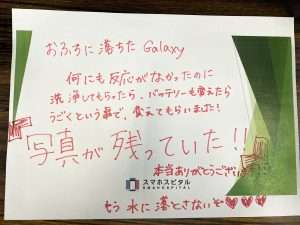 おふろに落ちた Galaxy
何にも反応がなかったのに
洗浄してもらったら、バッテリーも変えたら
うごくという事で、変えてもらいました!
写真が残っていた!!
本当ありがとうござい
スマホスピタル
SMAHOSPITAL
もう水に落とさないぞ♥♥♥